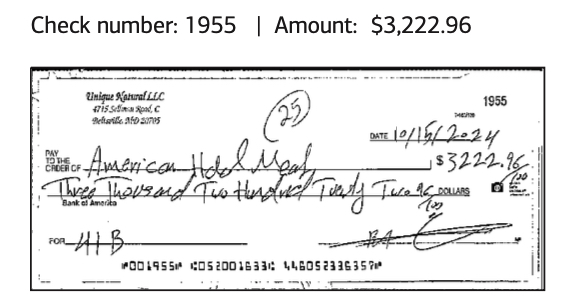 Check number: 1955 | Amount: $3,222.96
Unique Natural LLC
1955
4715 Sellman Road, C
Beltsville, MD 20705
25
DATE 10/15/2024
PAY
TO THE
ORDER OF American Halal Meat
$ 3222.96/100
Three Thousand Two Hundred Twenty Two 96/100 DOLLARS
Bank of America
FOR 41 B
⑈001955⑈ ⑆052001633⑆ 446052336357⑈